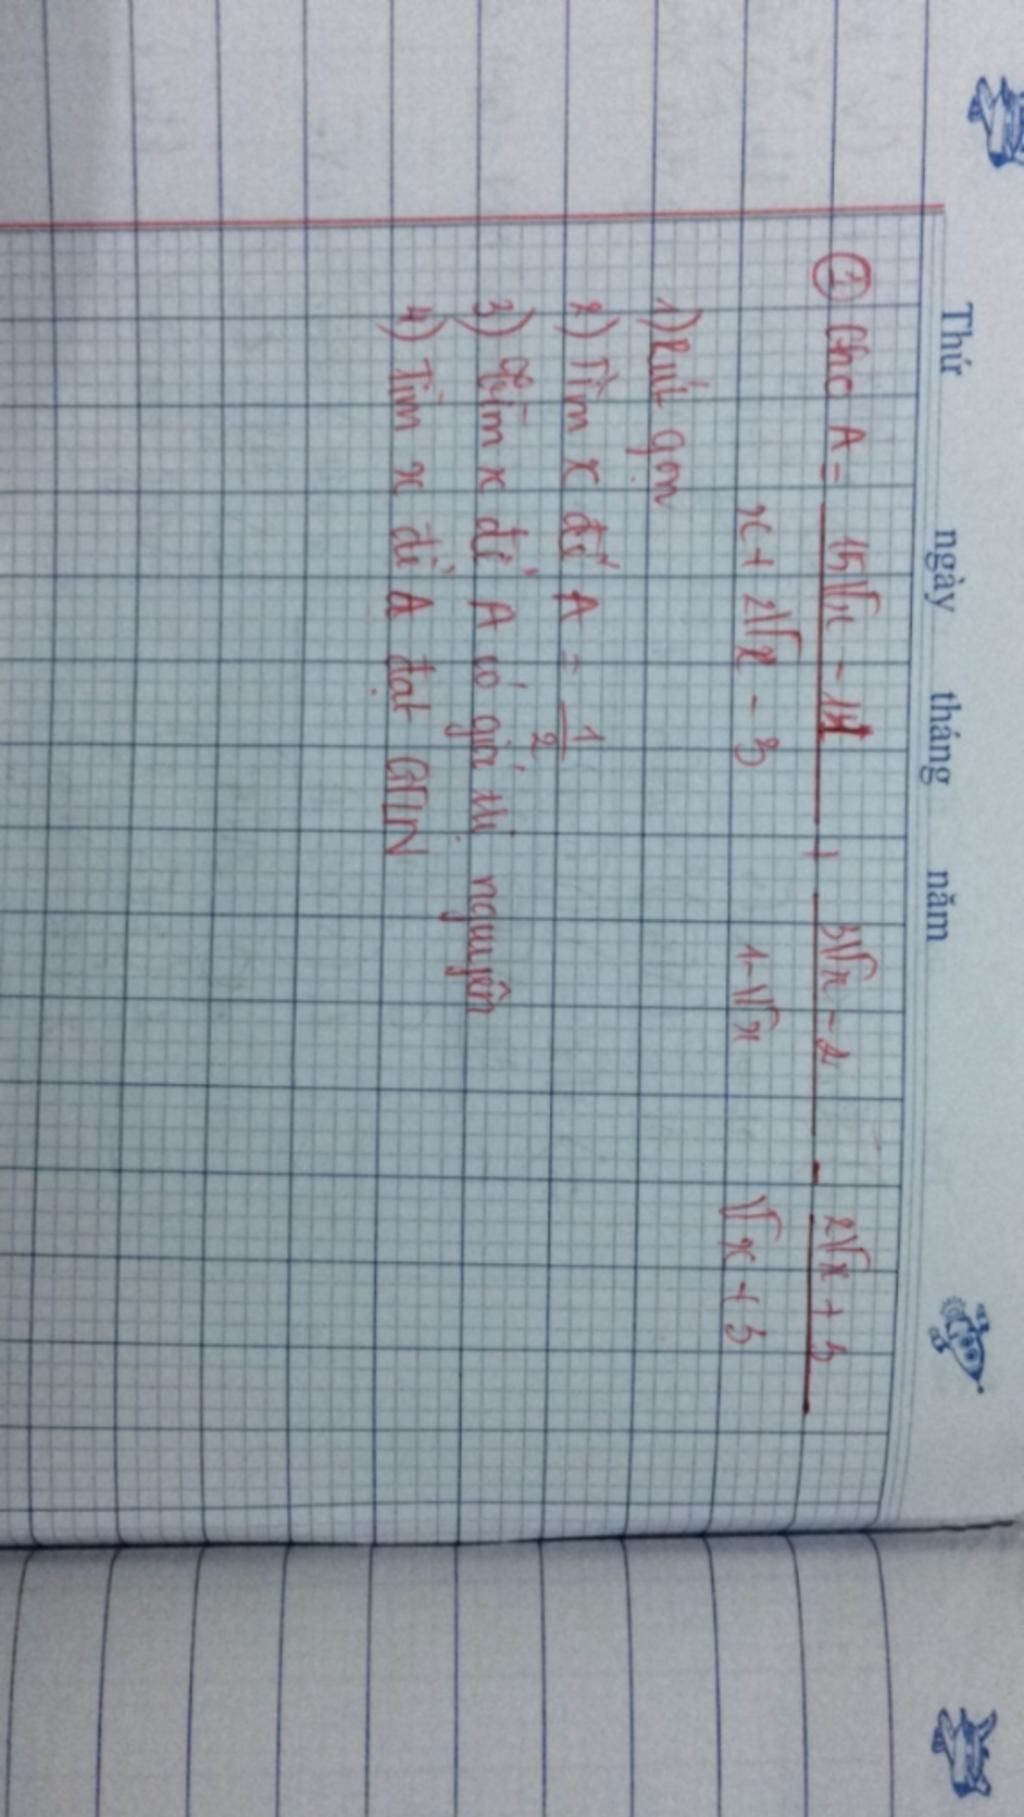 Thứ ngày tháng năm
① Cho A = \frac{15√x - 11}{x + 2√x - 3} + \frac{3√x - 2}{1 - √x} - \frac{2√x + 3}{√x + 3}
1) Rút gọn
2) Tìm x để A = \frac{1}{2}
3) Tìm x để A có giá trị nguyên
4) Tìm x để A đạt GTLN